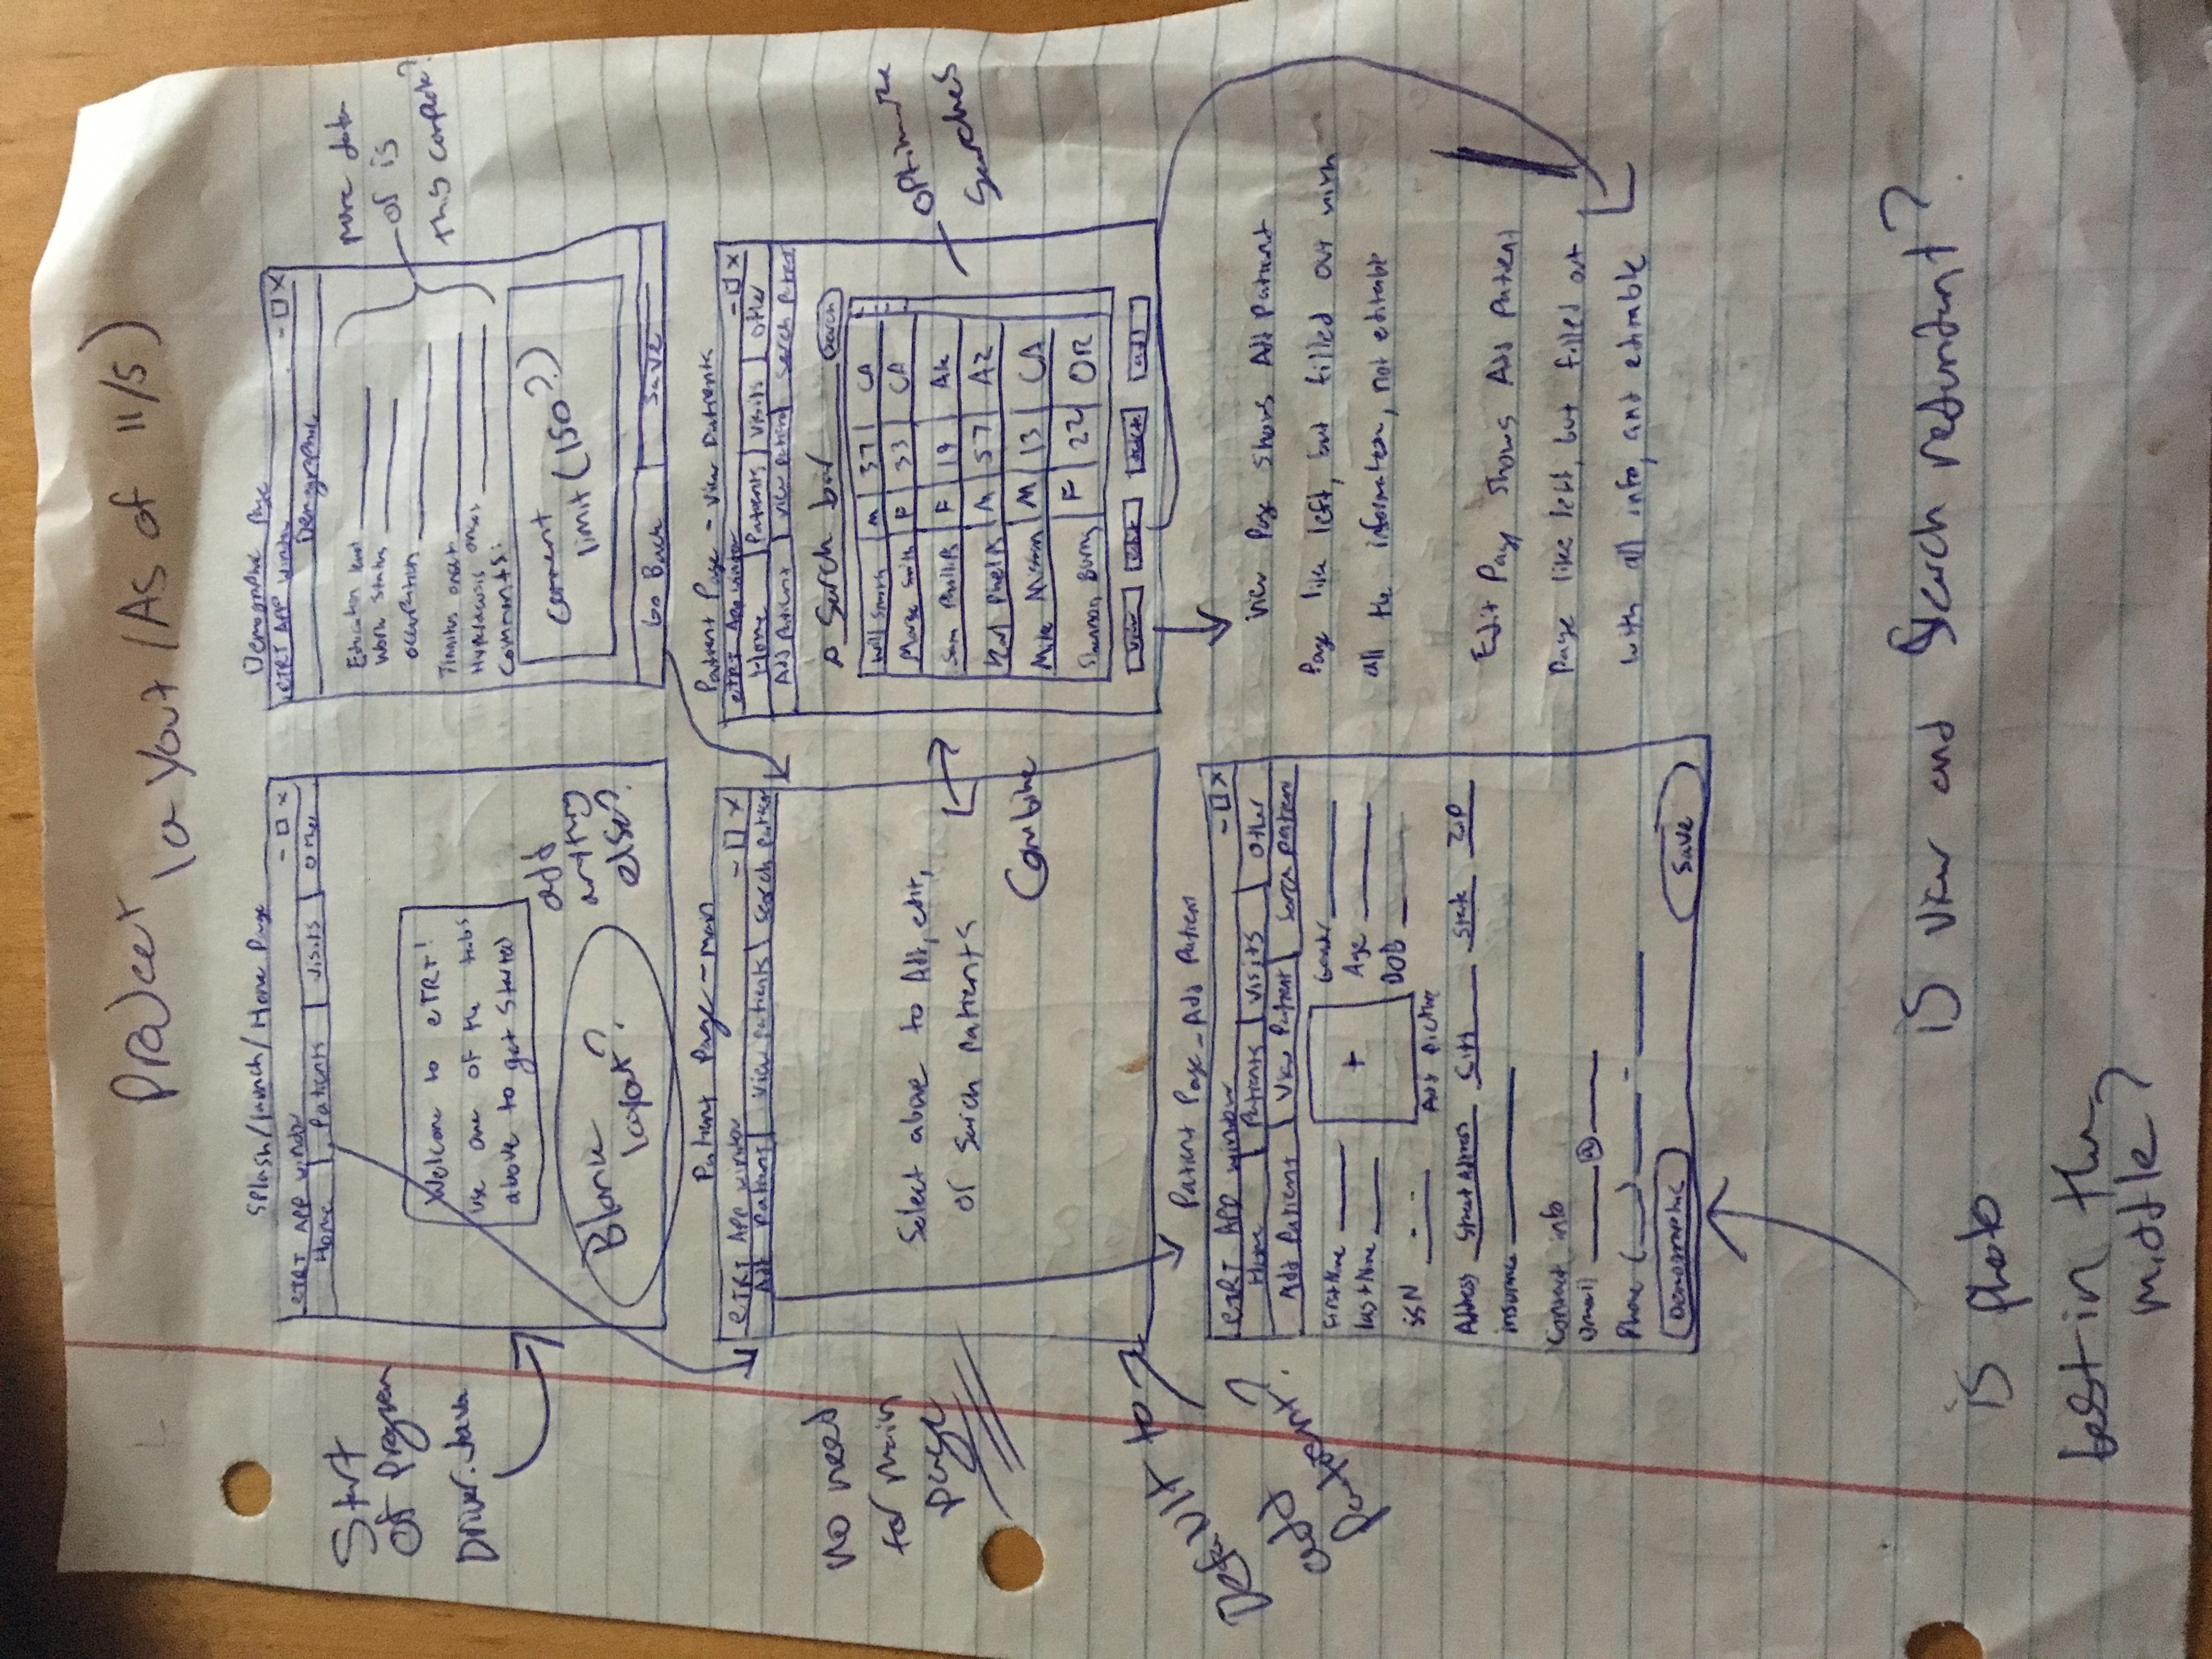 Project layout (As of 11/5)
Splash/launch/Home Page
eTRT APP window - □ x
Home | Patients | Visits | Other
Start
of Program
Driver.Java
Welcome to eTRT!
use one of the tabs
above to get started
Blank
layout?
add
anything
else?
Demographic Page
eTRT APP window - □ X
Demographic
Education level
Work Status
occupation
Tinnitus onset
Hyperacusis onset
Comments:
comment
limit (150?)
Go Back | Save
more data
or is
this complete?
Patient Page - main
eTRT App window - □ X
Add patient | View patients | Search patient
no need
for main
page
Select above to Add, edit,
or Serch patients
Combine
Default to
add
Patient?
Patient Page - View Patients
eTRT App window - □ X
Home | Patients | Visits | Other
Add patient | View patient | Serch patient
Serch bar Serch
Will Smith | M | 37 | CA
Marge Smith | F | 33 | CA
Sam Phillips | F | 19 | AK
Karl Phelps | M | 57 | AZ
Mike Mission | M | 13 | CA
Shannon Burns | F | 22 | OR
view edit delete add
optimize
Serches
Patient Page - Add Patient
eTRT APP window - □ X
Home | Patients | Visits | Other
Add Patient | View Patient | Serch patient
First Name
last Name
SSN - -
+
Add Picture
Gender
Age
DOB
Address Street Address City State ZIP
insurance
Contact info
email @
Phone ( ) -
Demographic Save
View Page shows Add Patient
Page like left, but filled out with
all the information, not editable
Edit Page shows Add Patient
Page like left, but filled out
with all info, and editable
is view and Search redundant?
is photo
best in the
middle?